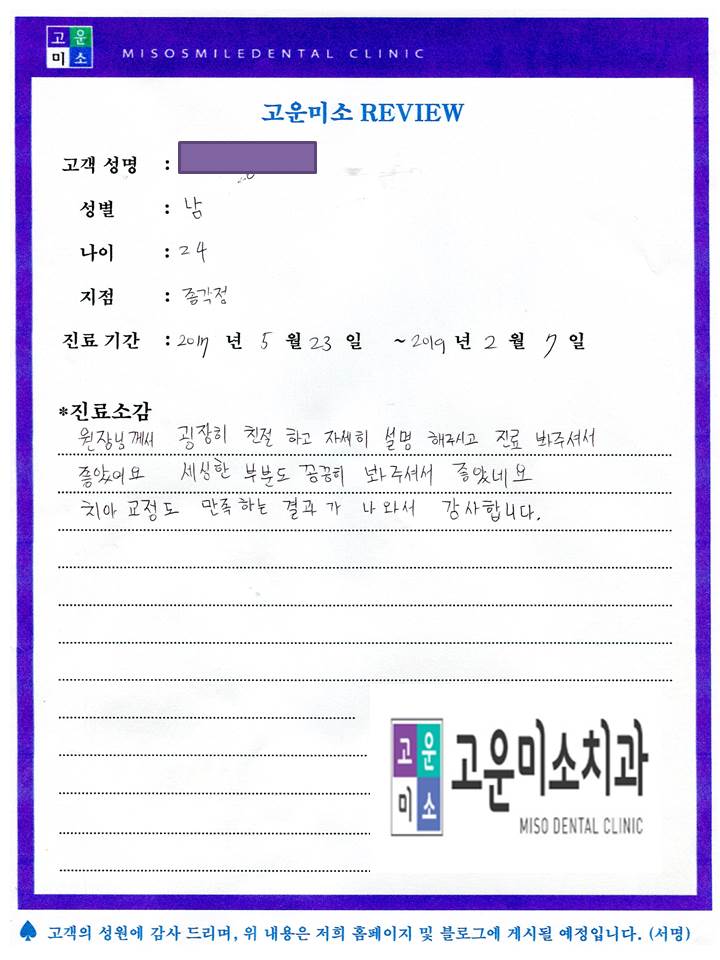 고운
미소
MISOSMILEDENTAL CLINIC
고운미소 REVIEW
고객 성명 :
성별 : 남
나이 : 24
지점 : 종각점
진료 기간 : 2017 년 5 월 23 일 ~ 2019 년 2 월 7 일
*진료소감
원장님께서 굉장히 친절 하고 자세히 설명 해주시고 진료 봐주셔서
좋았어요 세심한 부분도 꼼꼼히 봐주셔서 좋았네요
치아 교정도 만족하는 결과가 나와서 감사합니다.
고운
미소
고운미소치과
MISO DENTAL CLINIC
♠ 고객의 성원에 감사 드리며, 위 내용은 저희 홈페이지 및 블로그에 게시될 예정입니다. (서명)